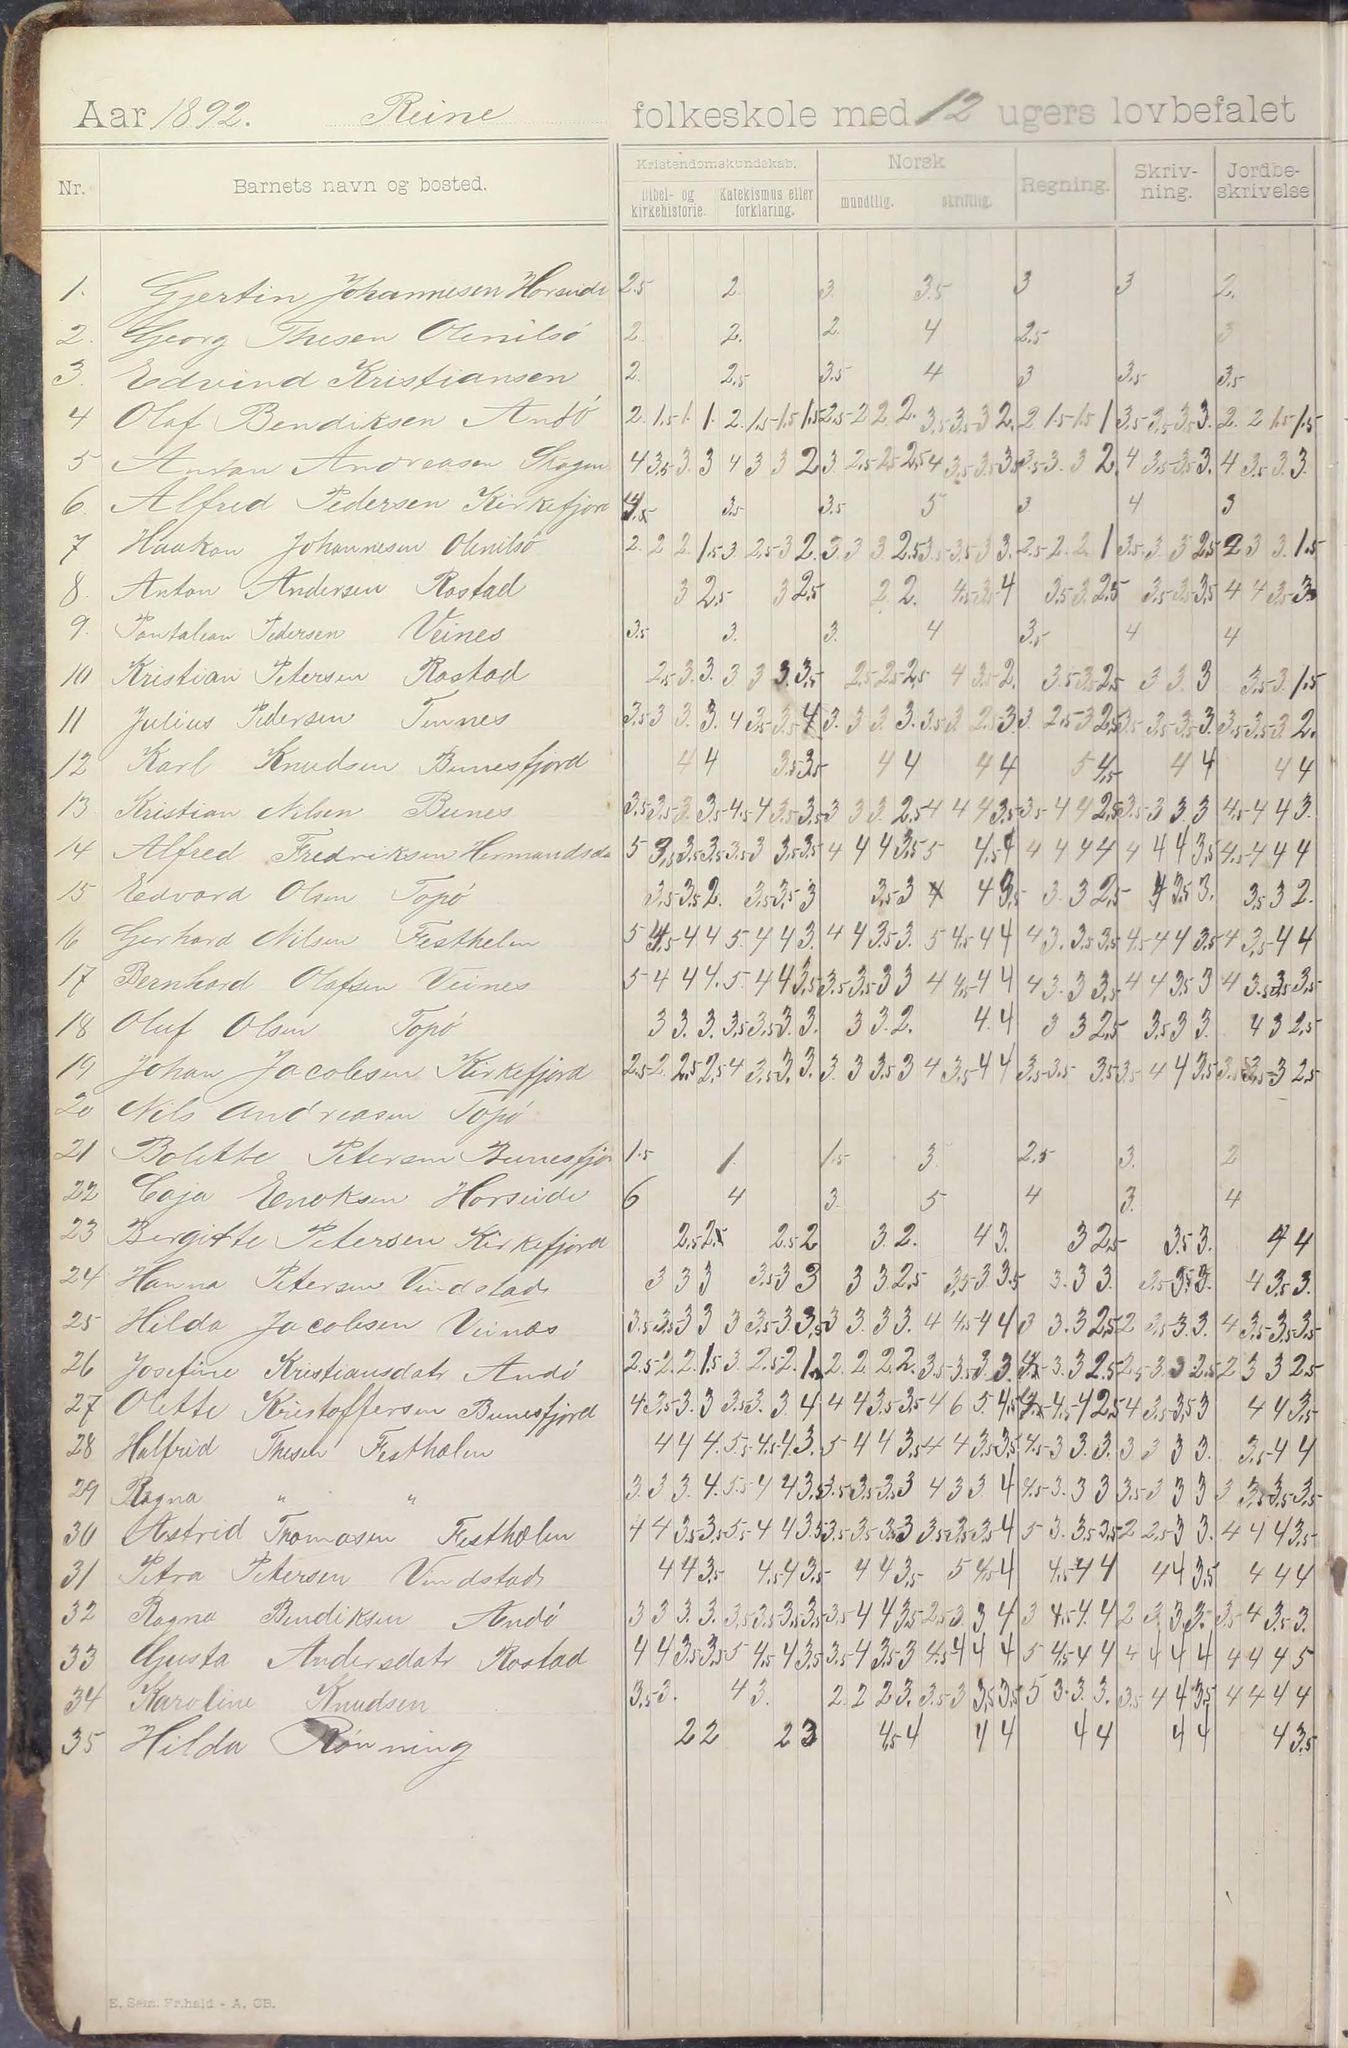 Aar 1892. Reine folkeskole med 12 ugers lovbefalet
Nr. Barnets navn og bosted. Kristendomskundskab. Bibel- og kirkehistorie. Katekismus eller forklaring. Norsk mundtlig. skriftlig. Regning. Skriv-ning. Jordbe-skrivelse
1. Gjertin Johannesen Horseide 2.5 2. 3. 3.5 3 3 2.
2. Georg Thesen Olenilsö 2. 2. 2 4 2.5 3
3. Edvind Kristiansen 2. 2.5 3.5 4 3 3.5 3.5
4 Olaf Bendiksen Andö 2. 1.5 1. 1. 2. 1.5 1.5 1.5 2.5 2 2 2. 3.5 3.5 3 2. 2 1.5 1.5 1 3.5 3.5 3.5 3. 2. 2 1.5 1.5
5 Andreasen 4 3.5 3. 3 4 3 3 2 3. 2.5 2.5 2.5 4 3.5 3.5 3.5 3.5 3. 3 2. 4 3.5 3.5 3. 4 3.5 3. 3.
6. Alfred Pedersen Kirkefjord 3.5 3.5 5 3 4 3
7 Haakon Johannesen Olenilsö 2. 2 2 1.5 3 2.5 3 2. 3. 3 3 2.5 3.5 3.5 3 3. 2.5 2. 2. 1 3.5 3. 3 2.5 2 3 3. 1.5
8. Anton Andersen Rostad 3 2.5 3 2.5 2. 2. 4.5 3.5 4 3.5 3. 2.5 3.5 3.5 3.5 4 4 3.5 3.
9. Pantalean Pedersen Veines 3.5 3. 3. 4 3.5 4 4
10 Kristian Petersen Rostad 2.5 3. 3. 3 3 3. 3.5 2.5 2.5 2.5 4 3.5 2. 3.5 3.5 2.5 3 3 3 3.5 3. 1.5
11 Julius Pedersen Tennes 3.5 3 3. 3. 4 3.5 3.5 4 3. 3 3 3. 3.5 3. 2.5 3. 3. 2.5 3 2.5 3.5 3.5 3.5 3. 3.5 3.5 3 2.
12 Karl Knudsen Bunesfjord 4 4 3.5 3.5 4 4 4 4 5 4.5 4 4 4 4
13. Kristian Nilsen Bunes 3.5 3.5 3. 3.5 4.5 4 3.5 3.5 3 3 3 2.5 4 4 4 3.5 3.5 4 4 2.5 3.5 3 3 3 4.5 4 4 3.
14 Alfred Fredriksen Hermandsda 5 3.5 3.5 3.5 3.5 3 3.5 3.5 4 4 4 3.5 5 4.5 4 4 4 4 4 4 4 4 3.5 4.5 4 4 4
15 Edvard Olsen Topö 3.5 3.5 2. 3.5 3.5 3 3.5 3 4 4 3.5 3 3 2.5 4 3.5 3. 3.5 3 2.
16 Gerhard Nilsen Festhelen 5 4.5 4 4 5. 4 4 3. 4 4 3.5 3. 5 4.5 4 4 4 3. 3.5 3.5 4.5 4 4 3.5 4 3.5 4 4
17 Bernhard Olafsen Veines 5 4 4 4. 5. 4 4 3.5 3.5 3.5 3 3 4 4.5 4 4 4 3. 3 3.5 4 4 3.5 3 4 3.5 3.5 3.5
18 Oluf Olsen Topö 3 3. 3. 3.5 3.5 3. 3. 3 3. 2. 4. 4 3 3 2.5 3.5 3 3. 4 3 2.5
19 Johan Jacobsen Kirkefjord 2.5 2. 2.5 2.5 4 3.5 3. 3. 3. 3 3.5 3 4 3.5 4 4 3.5 3.5 3.5 3.5 4 4 3.5 3.5 3.5 3 2.5
20 Nils Andreasen Topö
21 Bolette Petersen Bunesfjor 1.5 1. 1.5 3. 2.5 3. 2
22 Caja Enoksen Horseide 6 4 3. 5 4 3. 4
23 Bergitte Petersen Kirkefjord 2.5 2.5 2.5 2 3 2. 4 3. 3 2.5 3.5 3. 4 4
24 Hanna Petersen Vindstad 3 3 3 3.5 3 3 3 3 2.5 3.5 3. 3.5 3. 3 3. 3.5 3.5 3. 4 3.5 3.
25 Hilda Jacobsen Veines 3.5 3.5 3 3 3 3.5 3 3.5 3 3. 3 3. 4 4.5 4 4 3 3. 3 2.5 2 3.5 3. 3. 4 3.5 3.5 3.5
26 Josefine Kristiansdatr Andö 2.5 2. 2. 1.5 3. 2.5 2. 1. 2. 2. 2. 2. 3.5 3.5 3. 3. 3. 3 2.5 2.5 3. 3 2.5 2 3 3 2.5
27 Olette Kristoffersen Bunesfjord 4 3.5 3. 3 3.5 3. 3. 4 4 4 3.5 3.5 4 6 5. 4.5 4.5 4.5 4 2.5 4 3.5 3.5 3 4 4 3.5
28 Halfrid Thesen Festhælen 4 4 4. 5.5 4.5 4. 3. 5 4 4 3.5 4 4 3.5 3.5 4.5 3 3. 3. 3 3 3 3. 3.5 4 4
29 Ragna " " 3. 3 3. 4. 5.5 4 4 3.5 3.5 3.5 3.5 3 4 3 3 4 4.5 3. 3 3 3.5 3 3 3 3 3.5 3.5 3.5
30 Astrid Thomasen Festhælen 4 4 3.5 3.5 5.5 4 4 3.5 3.5 3.5 3.5 3 3.5 3.5 3.5 4 5 3. 3.5 3.5 2 2.5 3 3. 4 4 4 3.5
31 Petra Petersen Vindstad 4 4 3.5 4.5 4 3.5 4 4 3.5 5 4.5 4 4.5 4 4 4 4 3.5 4 4 4
32 Ragna Bendiksen Andö 3 3 3. 3. 3.5 3.5 3.5 3.5 3.5 4 4 3.5 2.5 3. 3 4 3 4.5 4 4 2 3 3 3. 3.5 4 3.5 3.
33 Gusta Andersdatr Rostad 4 4 3.5 3.5 5 4.5 4 3.5 3.5 4 3.5 3 4.5 4 4 4 5 4.5 4 4 4 4 4 4 4 4 4 5
34 Karoline Knudsen 3.5 3. 4 3. 2. 2 2 3. 3.5 3 3.5 3.5 5 3. 3. 3. 3.5 4 4 3.5 4 4 4 4
35 Hilda Rönning 2 2 2 3 4.5 4 4 4 4 4 4 4 4 3.5
E. Sem. Fr.hald - A. ØB.